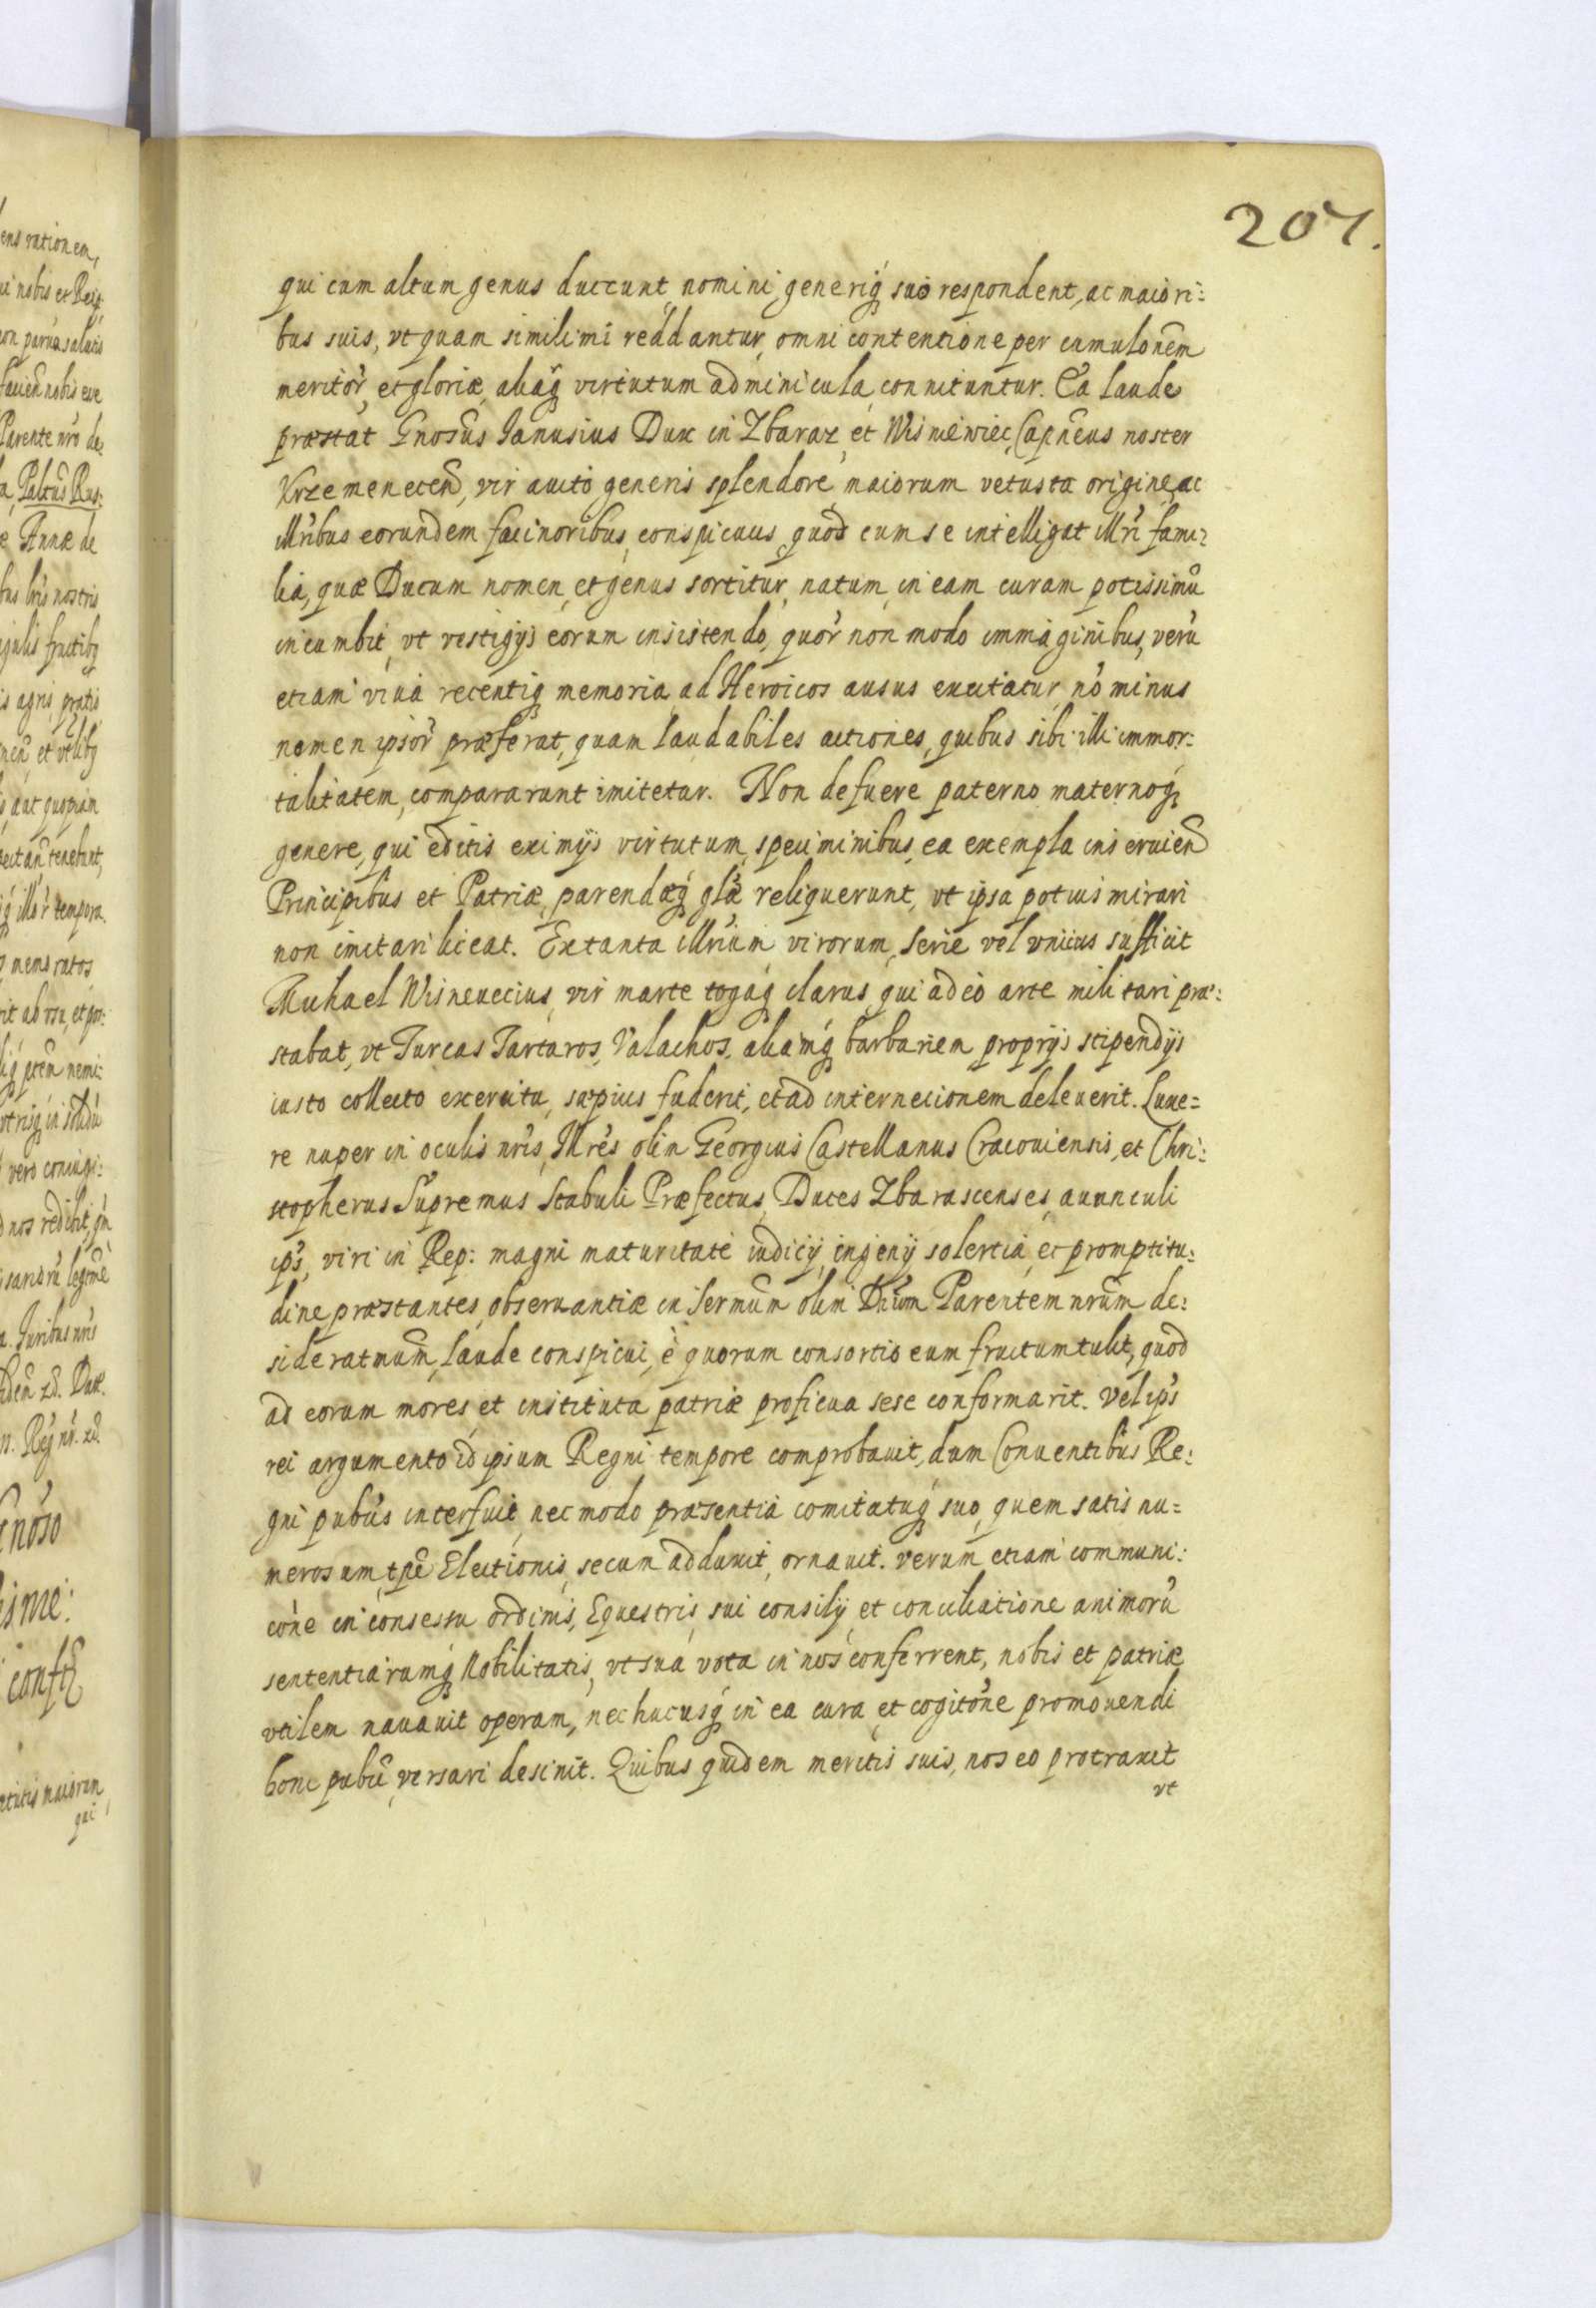 207.
qui cum altum genus ducunt, nomini, generiq́ suo respondent, ac maiori:
bus suis, vt quam simillimi reddantur, omni contentione per cumulonẽm
meritor̃, et gloriæ, aliaq́ virtutum adminicula, connituntur. Ea laude
præstat Gnosũs Ianusius Dux in Zbaraz, et Wisniewiec, Capñeus noster
Krzemenecen̄, vir auito generis splendore, maiorum vetusta origine, ac
illr̃ibus eorundem facinoribus, conspicuus, quod cum se intelligat illr̃i fami:
lia, quæ Ducum nomen, et genus sortitur, natum, in eam curam potissimũ
incumbit, vt vestigÿs eorum insistendo, quor̃ non modo immaginibus, verũ
etiam viua recentiq́ memoria, ad Heroicos ausus excitatur, nõ minus
nomen ipsor̃ præferat, quam laudabiles actiones, quibus sibi illi immor:
talitatem, compararunt imitetur. Non defuere paterno maternoq́
genere, qui editis eximÿs virtutum, speciminibus, ea exempla inseruien̄
Principibus et Patriæ, parendæq́ glæ̃ reliquerunt, vt ipsa potius mirari
non imitari liceat. Ex tanta illrĩum virorum, serie vel vnicus sufficit
Michael Wisneuecius, vir marte togaq́ clarus, qui adeo arte militari præ:
stabat, vt Turcas Tartaros, Valachos, aliamq́ barbariem proprÿs stipendÿs
iusto collecto exercitu, sæpius fuderit, et ad internecionem deleuerit. Luxe=
re nuper in oculis nr̃is, Illr̃es olim Georgius Castellanus Cracouiensis, et Chri:
stopherus Supremus Stabuli Præfectus, Duces Zbarascenses, auunculi
ips̃, viri in Rep: magni maturitate iudicÿ, ingenÿ solertia, et promptitu:
dine præstantes, obseruantiæ in Sermũm olim Dnũm Parentem nrũm de:
sideratmũm, laude conspicui, è quorum consortio eum fructum tulit, quod
ad eorum mores et instituta patriæ proficua sese conformarit. Vel ips̃
rei argumento id ipsum Regni tempore comprobauit, dum Conuentibus Re:
gni pubc̃is interfuit, nec modo præsentia comitatuq́ suo, quem satis nu=
merosum, tpẽ Electionis, secum adduxit, ornauit. verum etiam communi:
cõne in consessu ordinis, Equestris, sui consilÿ, et conciliatione animorũ
sententiarumq́ Nobilitatis, vt sua vota in nos conferrent, nobis et patriæ
vtilem nauauit operam, nec hucusq́ in ea cura, et cogitõne promouendi
boni pubc̃i, versari desinit. Quibus quidem meritis suis, nos eo protraxit
vt